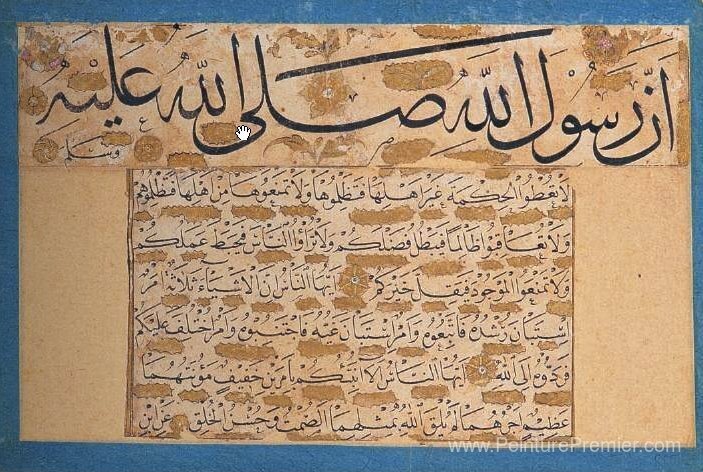 انّ رسول الله صلى الله عليه
وسلم
لا تعطوا الحكمة غير اهلها فتظلموها ولا تمنعوها من اهلها فتظلموهم
ولا تعاقبوا ظالما فيبطل فضلكم ولا تراؤا الناس فيحبط عملكم
ولا تمنعوا الموجود فيقل خيركم ايها الناس ان الاشياء ثلاثة امر
استبان رشده فاتبعوه وامر استبان غيه فاجتنبوه وامر اختلف عليكم
فردوه الى الله ايها الناس الا انبئكم بامرين خفيف مؤنتهما
عظيم اجرهما لم يلق الله بمثلهما الصمت وحسن الخلق عن ابن
www.PeinturePremier.com